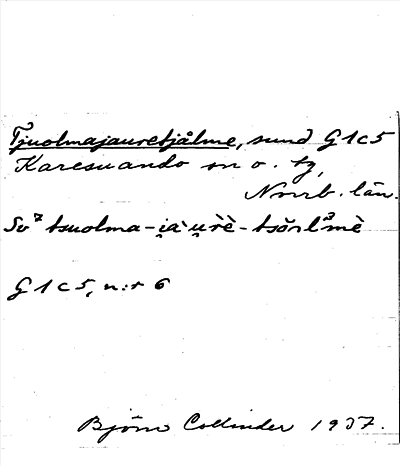 Tjuolmajauretjålme, sund G1c5
Karesuando sn o. tg,
Norrb. län.
Sv⁷ tsuolma-i̯a`u̯rè-tsŏ̀rl̊mè
G1c5, n:r 6
Björn Collinder 1937.